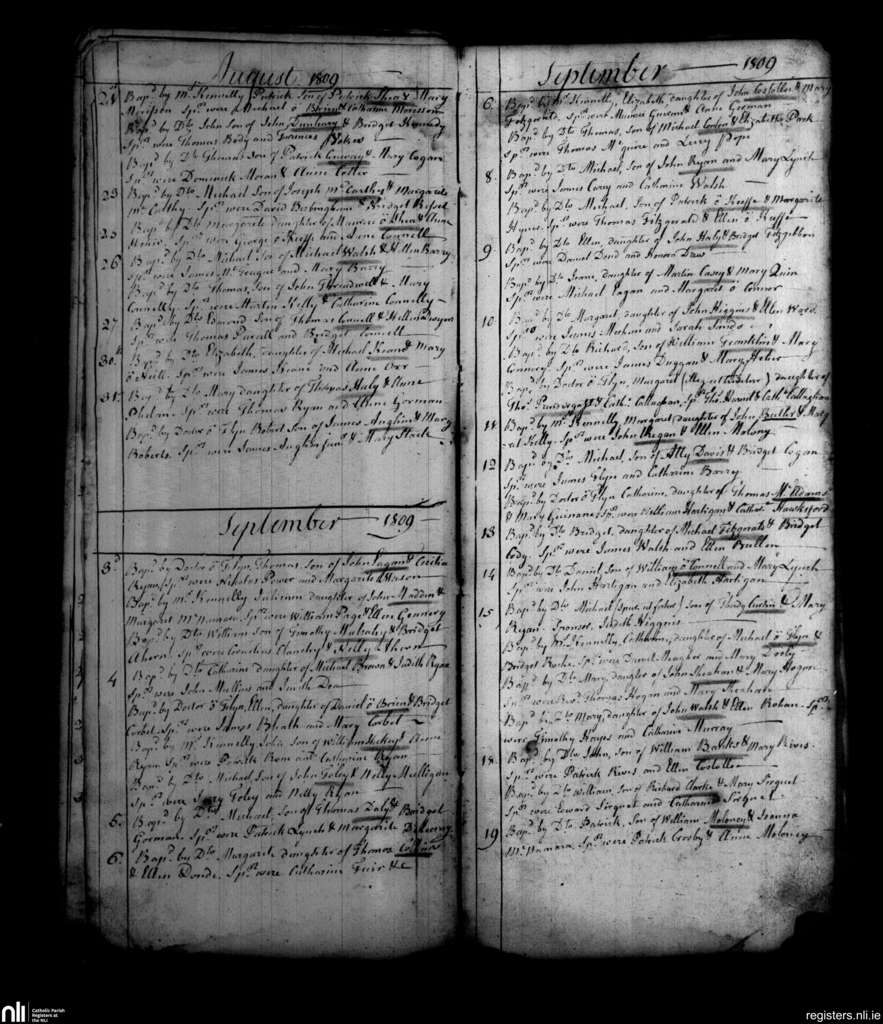 August 1809
21 Bapd. by Mr. Kennelly Patrick Son of Patrick Shea & Mary
Morison Sprs. were Michael ô Brien & Catharine Morisson
Bapd. by Do. John Son of John Dunleavy & Bridget Kennedy
Sprs. were Thomas Body and Frances Stokes
Bapd. by Do. Thomas Son of Patrick Conway & Mary Cogan
Sprs. were Dominick Moran & Anne Cotter
23 Bapd. by Dto. Michael Son of Joseph McCarthy & Margaret
McCarthy. Sprs. were David & Bridget
25 Bapd. by Dto. Margarite daughter of Maurice ô Shea & Anne
Sprs. were George ô Keeffe and Jane Connell
26 Bapd. by Dto. Michael Son of Michael Walsh & Ellen Barry
Sprs. were James McTeague and Mary Barry
Bapd. by Dto. Thomas, Son of John Threadwell & Mary
Connelly. Sprs. were Martin Kelly & Catharine Connelly
27 Bapd. by Dto. Edmond Son of Thomas Connell & Hellen
Sprs. were Thomas Purcell and Bridget Connell
30th. Bapd. by Dto. Elizabeth, daughter of Michael Keane & Mary
ô Neill. Sprs. were James Keane and Anne Orr
31. Bapd. by Dto. Mary daughter of Thomas Haly & Anne
Phelan. Sprs. were Thomas Ryan and Anne Gorman
Bapd. by Doctor ô Glyn Robert Son of James Anglim & Mary
Roberts. Sprs. were James Anglim Junr. & Mary Stack
September 1809
3d. Bapd. by Doctor ô Glyn, Thomas, Son of John Fagan & Cecilia
Ryan. Sprs. were Nicholas Power and Margarite
Bapd. by Mr. Kennelly Julian daughter of John Madden &
Margaret McNamara Sprs. were William Page & Ellen Gennery
Bapd. by Dto. William Son of Timothy Mulcahy & Bridget
Ahern. Sprs. were Cornelius Clanchy & Nelly Ahern
4 Bapd. by Dto. Catharine daughter of Michael Brown & Judith Ryan
Sprs. were John Mullins and Judith
Bapd. by Doctor ô Glyn, Ellen, daughter of Daniel ô Brien & Bridget
Corbet. Sprs. were James Heath and Mary Corbet
Bapd. by Mr. Kennelly John Son of William Hickey & Anne
Ryan Sprs. were Patrick and Catharine Ryan
Bapd. by Dto. Michael Son of John Foley & Nelly Mulligan
Sprs. were Foley and Nelly Ryan
5. Bapd. by Dto. Michael, Son of Thomas Daly & Bridget
Gorman. Sprs. were Patrick Lynch & Margarite
6. Bapd. by Dto. Margaret daughter of Thomas Collins
& Ellen Sprs. were Catharine
September 1809
6. Bapd. by Mr. Kennelly, Elizabeth, daughter of John Costelloe & Mary
Fitzgerald. Sprs. were Maurice & Anne Gorman
Bapd. by Dto. Thomas, Son of Michael & Elizabeth Park
Sprs. were Thomas McGuire and Lucy Pope
8. Bapd. by Dto. Michael, Son of John Ryan and Mary Lynch
Sprs. were James Carey and Catharine Walsh
Bapd. by Dto. Michael, Son of Patrick ô Keeffe & Margarite
Hynes. Sprs. were Thomas Fitzgerald & Ellen ô Keeffe
9 Bapd. by Dto. Ellen, daughter of John Haly & Bridget Fitzgibbon
Sprs. were Daniel and Honora
Bapd. by Dto. Jeane, daughter of Martin Casey & Mary Quin
Sprs. were Michael Eagan and Margaret ô Connor
10 Bapd. by Dto. Margaret, daughter of John Higgins & Ellen Ward
Sprs. were James Mechan and Sarah
Bapd. by Dto. Richard, Son of William Franklin & Mary
Conway. Sprs. were James Duggan & Mary
Bapd. by Doctor ô Glyn, Margaret daughter of
Thos. Prendergast & Cath: Callaghan, Sprs. Thos. & Cath: Callaghan
11 Bapd. by Mr. Kennelly, Margaret, daughter of John Butler & Mary
Kelly. Sprs. were John Regan & Ellen Molony
12 Bapd. by Dto. Michael, Son of Davis & Bridget Cogan
Sprs. were James Glyn and Catharine Barry
Bapd. by Doctor ô Glyn Catharine, daughter of Thomas McAdams
& Mary Guinane, Sprs. were William Hartigan & Cathe. Hawksford
13 Bapd. by Dto. Bridget, daughter of Michael Fitzgerald & Bridget
Cody. Sprs. were James Walsh and Ellen Butler
14 Bapd. by Dto. Daniel, Son of William ô Connell and Mary Lynch
Sprs. were John Hartigan and Elizabeth Hartigan
15 Bapd. by Dto. Michael Son of Thady Curtin & Mary
Ryan. Sponsor. Judith Higgins
Bapd. by Mr. Kennelly, Catharine, daughter of Michael ô Glyn &
Bridget Roche. Sprs. were Daniel Meagher and Mary
Bapd. by Dto. Mary, daughter of John Sheahan & Mary Hogan
Sprs. were Thomas Hogan and Mary Sheahan
Bapd. by Dto. Mary, daughter of John Walsh & Ellen Rohan. Sprs.
were Timothy Hayes and Catharine Murray
18 Bapd. by Dto. John, Son of William Banks & Mary Rives.
Sprs. were Patrick Rives and Ellen Costelloe
Bapd. by Dto. William, Son of Richard Clarke & Mary Sirguet
Sprs. were Edward Sirguet and Catharine Sirguet
19 Bapd. by Dto. Patrick, Son of William Moloney & Joanna
McNamara. Sprs. were Patrick Crosby & Anne Moloney
nli
Catholic Parish
Registers at
the NLI
registers.nli.ie